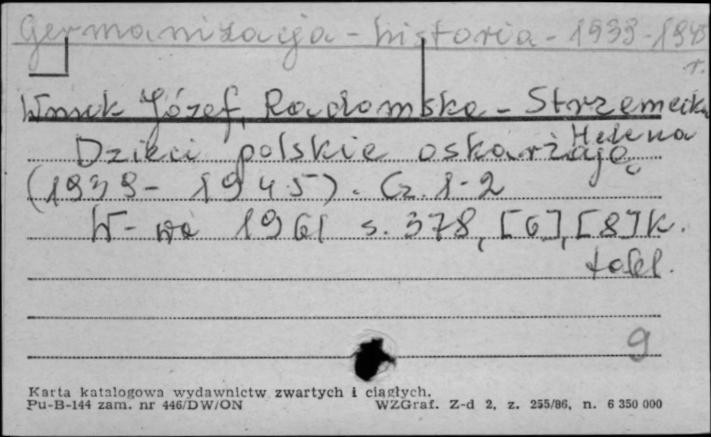 Germanizacja - historia - 1939-1945
r.
Wnuk Józef, Radomska - Strzemecka
Helena
Dzieci polskie oskarżają
(1939 - 1945). Cz. 1-2
W-wa 1961 s. 378, [6], [8] k.
tabl.
9
Karta katalogowa wydawnictw zwartych i ciągłych.
Pu-B-144 zam. nr 446/DW/ON WZGraf. Z-d 2, z. 255/86, n. 6 350 000